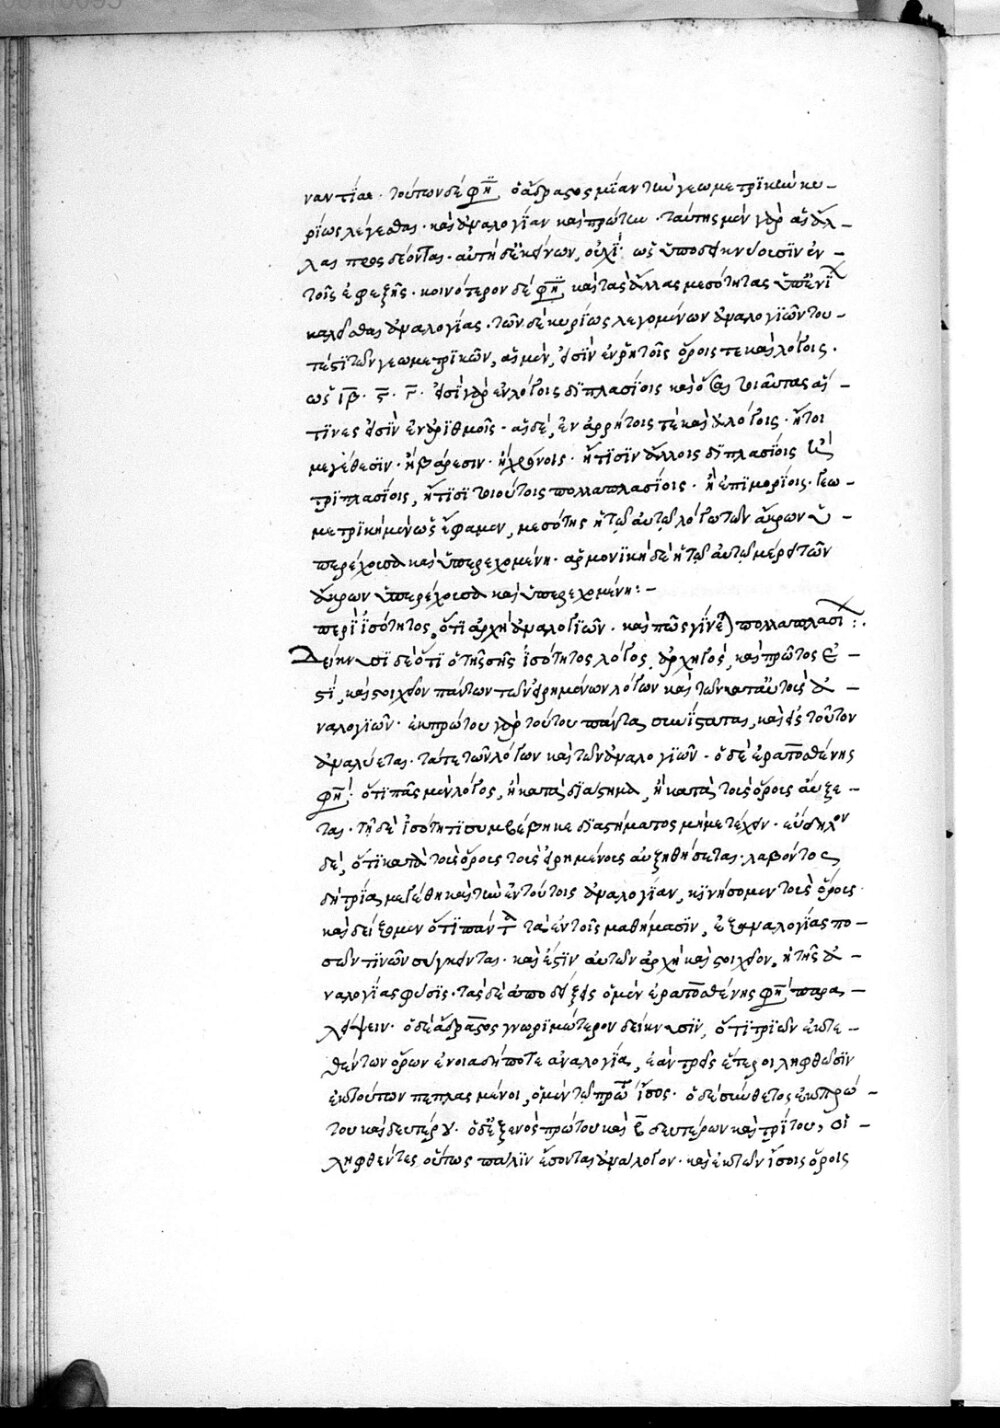 ναντίαι. τούτων δέ φη ὁ ἄδραστος μίαν τὴν γεωμετρικὴν κυ-
ρίως λέγεσθαι. καὶ ἀναλογίαν καὶ πρώτην. ταύτης μὲν γὰρ αἱ ἄλ-
λαι προσδέονται. αὐτὴ δ' ἐκείνων οὐχί. ὡς ὑποδείκνυσιν ἐν
τοῖς ἐφεξῆς. κοινότερον δέ φη καὶ τὰς ἄλλας μεσότητας ὑπ' ἐνί
καλεῖσθαι ἀναλογίας. τῶν δὲ κυρίως λεγομένων ἀναλογιῶν του-
τέστι τῶν γεωμετρικῶν, αἱ μέν, εἰσὶν ἐν ῥητοῖς ὅροις τε καὶ λόγοις.
ὡς ιβ. ς. γ. εἰσὶ γὰρ ἐν λόγοις διπλασίοις καὶ τοιαῦται αἵ-
τινες εἰσὶν ἐν ἀριθμοῖς. αἱ δέ, ἐν ἀρρήτοις τὲ καὶ ἀλόγοις. ἤτοι
μεγέθεσιν. ἢ βάρεσιν. ἢ χρόνοις. ἤ τισιν ἄλλοις διπλασίοις
τριπλασίοις, ἤ τισι τοιούτοις πολλαπλασίοις. ἢ ἐπιμορίοις. γεω-
μετρικὴ μὲν ὡς ἔφαμεν, μεσότης ἡ τῷ αὐτῷ λόγῳ τῶν ἄκρων ὑ-
περέχουσα καὶ ὑπερεχομένη. ἁρμονικὴ δὲ ἡ τῷ αὐτῷ μέρει τῶν
ἄκρων ὑπερέχουσα καὶ ὑπερεχομένη: -
περὶ ἰσότητος, ὅτι ἀρχὴ ἀναλογιῶν. καὶ πῶς γίνε) πολλαπλασι:.
Δείκνυσι δὲ ὅτι ὁ τῆς ἰσότητος λόγος, ἀρχηγός, καὶ πρῶτος ἐ-
στί, καὶ στοιχεῖον πάντων τῶν εἰρημένων λόγων καὶ τῶν κατ' αὐτοὺς ἀ-
ναλογιῶν. ἐκ πρώτου γὰρ τούτου πάντα συνίσταται, καὶ εἰς τοῦτον
ἀναλύεται. τά τε τῶν λόγων καὶ τῶν ἀναλογιῶν. ὁ δὲ ἐρατοσθένης
φη. ὅτι πᾶς μὲν λόγος, ἢ κατὰ διάστημα, ἢ κατὰ τοὺς ὅρους αὔξε-
ται. τῇ δὲ ἰσότητι συμβέβηκε διαστήματος μὴ μετέχειν. εὔδηλον
δέ, ὅτι κατὰ τοὺς ὅρους τοὺς εἰρημένους αὐξηθήσεται. λαβόντες
δὴ τρία μεγέθη καὶ τὴν ἐν τούτοις ἀναλογίαν, κινήσομεν τοὺς ὅρους.
καὶ δείξομεν ὅτι πάντα τὰ ἐν τοῖς μαθήμασιν, ἐξ ἀναλογίας πο-
σῶν τινῶν σύγκειται. καὶ ἔστιν αὐτῶν ἀρχὴ καὶ στοιχεῖον, ἡ τῆς ἀ-
ναλογίας φύσις. τὰς δὲ ἀποδείξεις ὁ μὲν ἐρατοσθένης φη παρα-
λείψειν. ὁ δὲ ἄδραστος γνωριμώτερον δείκνυσιν, ὅτι τριῶν ἐκτε-
θέντων ὅρων ἐν οἱαδήποτε ἀναλογία, ἐὰν τρεῖς ἕτεροι ληφθῶσιν
ἐκ τούτων πεπλασμένοι, ὁ μὲν τῷ πρω ἴσος. ὁ δὲ σύνθετος ἐκ πρώ-
του καὶ δευτέρου. ὁ δ' ἐξ ἑνὸς πρώτου καὶ β δευτέρων καὶ τρίτου, οἱ
ληφθέντες οὕτως πάλιν ἔσονται ἀνάλογον. καὶ ἐκ τῶν ἴσοις ὅροις